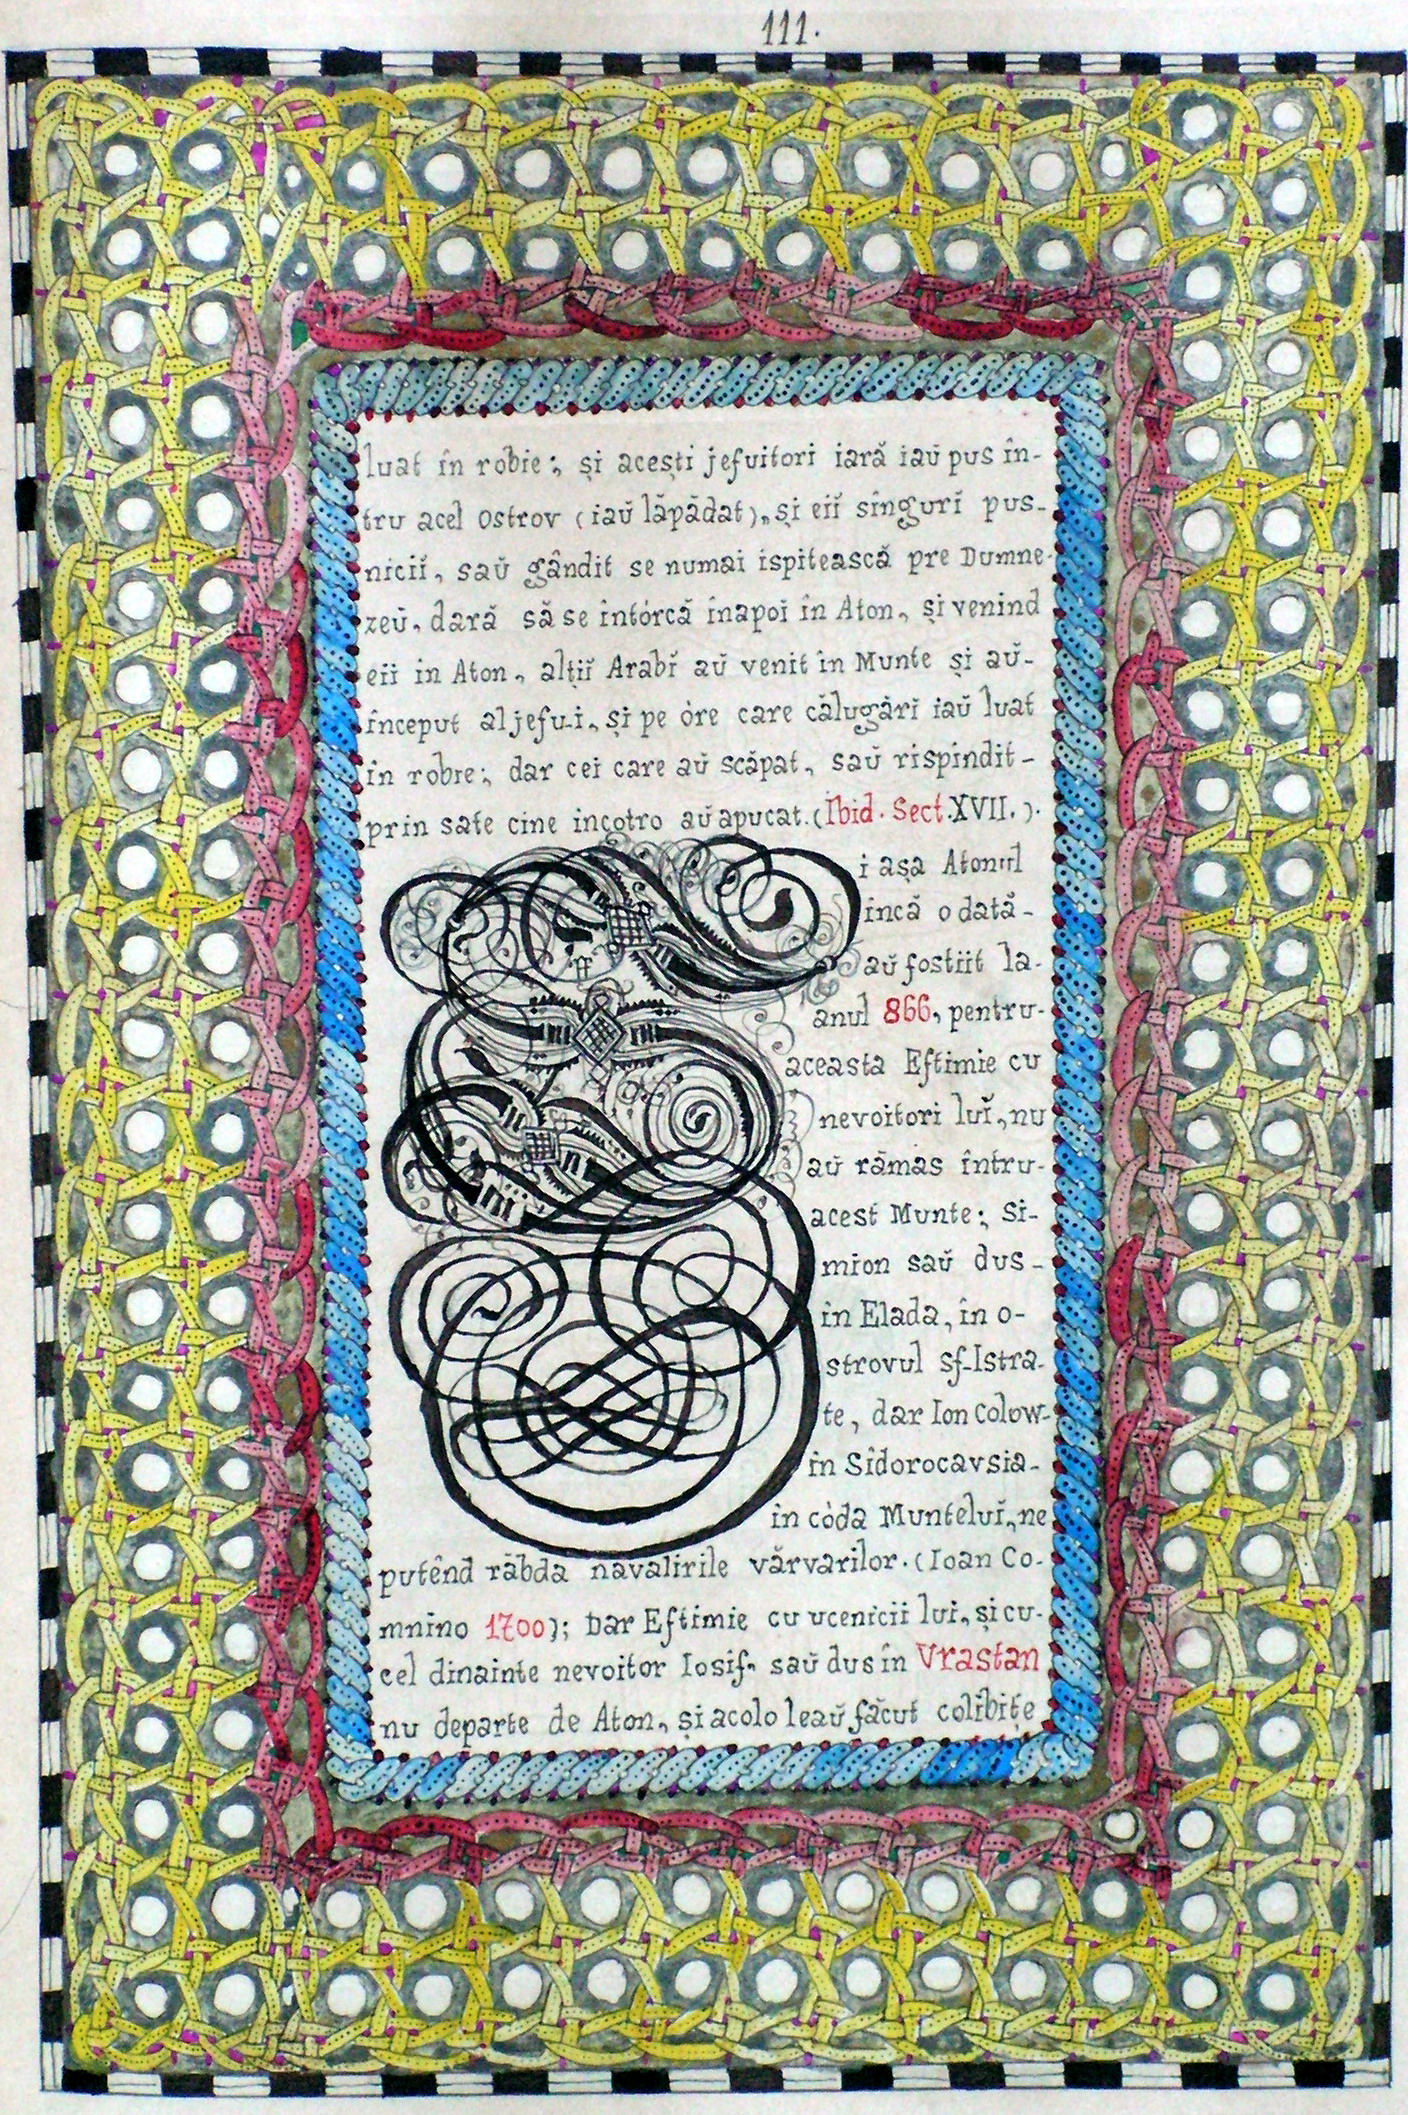 111.
luat în robie; și acești jefuitori iară iaŭ pus în-
tru acel Ostrov (iaŭ lăpădat), și eiĭ sînguri pus-
niciĭ, saŭ gândit se numai ispitească pre Dumne-
zeŭ, dară să se întórcă înapoĭ în Aton, și venind
eii in Aton, alțiĭ Arabĭ aŭ venit în Munte și aŭ-
început al jefu-i, și pe óre care călugări iaŭ luat
în robie; dar cei care aŭ scăpat, saŭ rispindit-
prin sate cine incotro aŭ apucat. (Ibid. Sect. XVII.).
i așa Atonul
incă o dată-
aŭ fostiit la-
anul 866, pentru-
aceasta Eftimie cu
nevoitori luĭ, nu
aŭ rămas întru-
acest Munte; Si-
mion saŭ dus-
în Elada, în o-
strovul sf-Istra-
te, dar Ion Colow-
în Sidorocavsia-
în còda Munteluĭ, ne
putênd răbda năvalirile vărvarilor. (Ioan Co-
mnino 1700); Dar Eftimie cu ucenicii lui, și cu-
cel dinainte nevoitor Iosif, saŭ dus în Vrastan
nu departe de Aton, și acolo leaŭ făcut colibițe